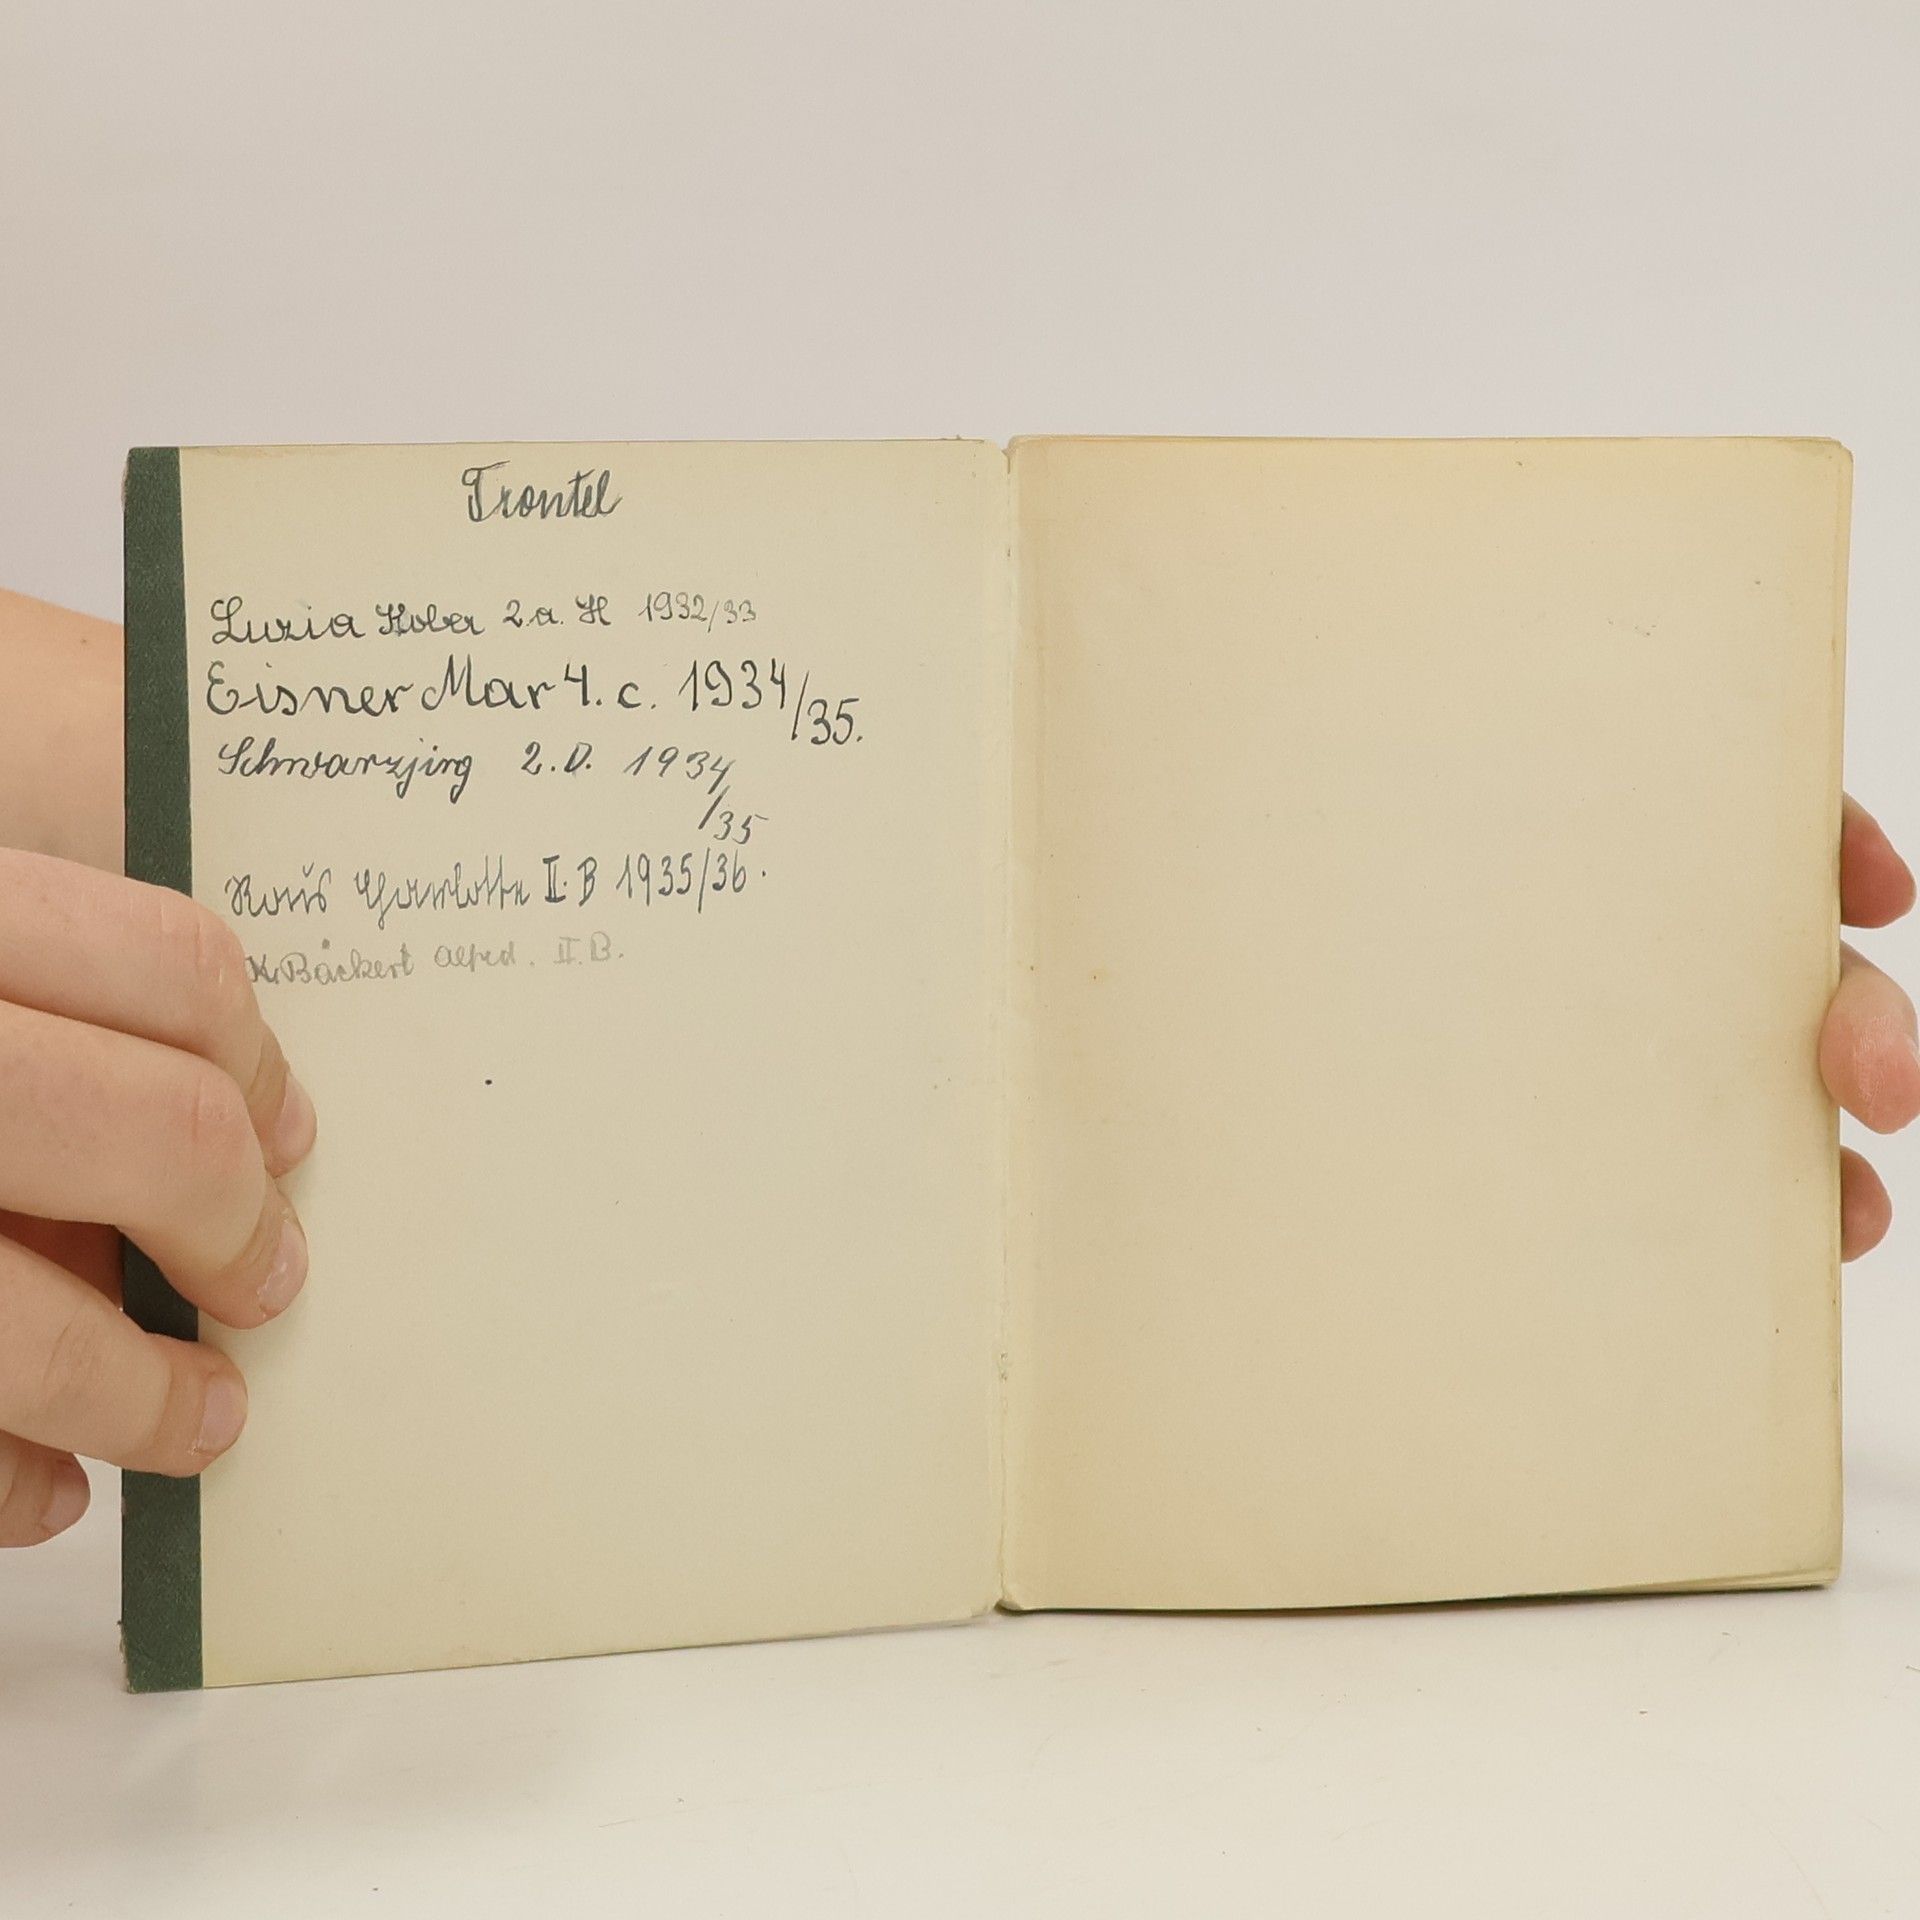 Trontel
Luzia Kober 2.a. H 1932/33
Eisner Mar 4. c. 1934/35.
Schwarzjirg 2. D. 1934
/35
Raus Charlotte II. B 1935/36.
Bäckert Alfred. II. B.